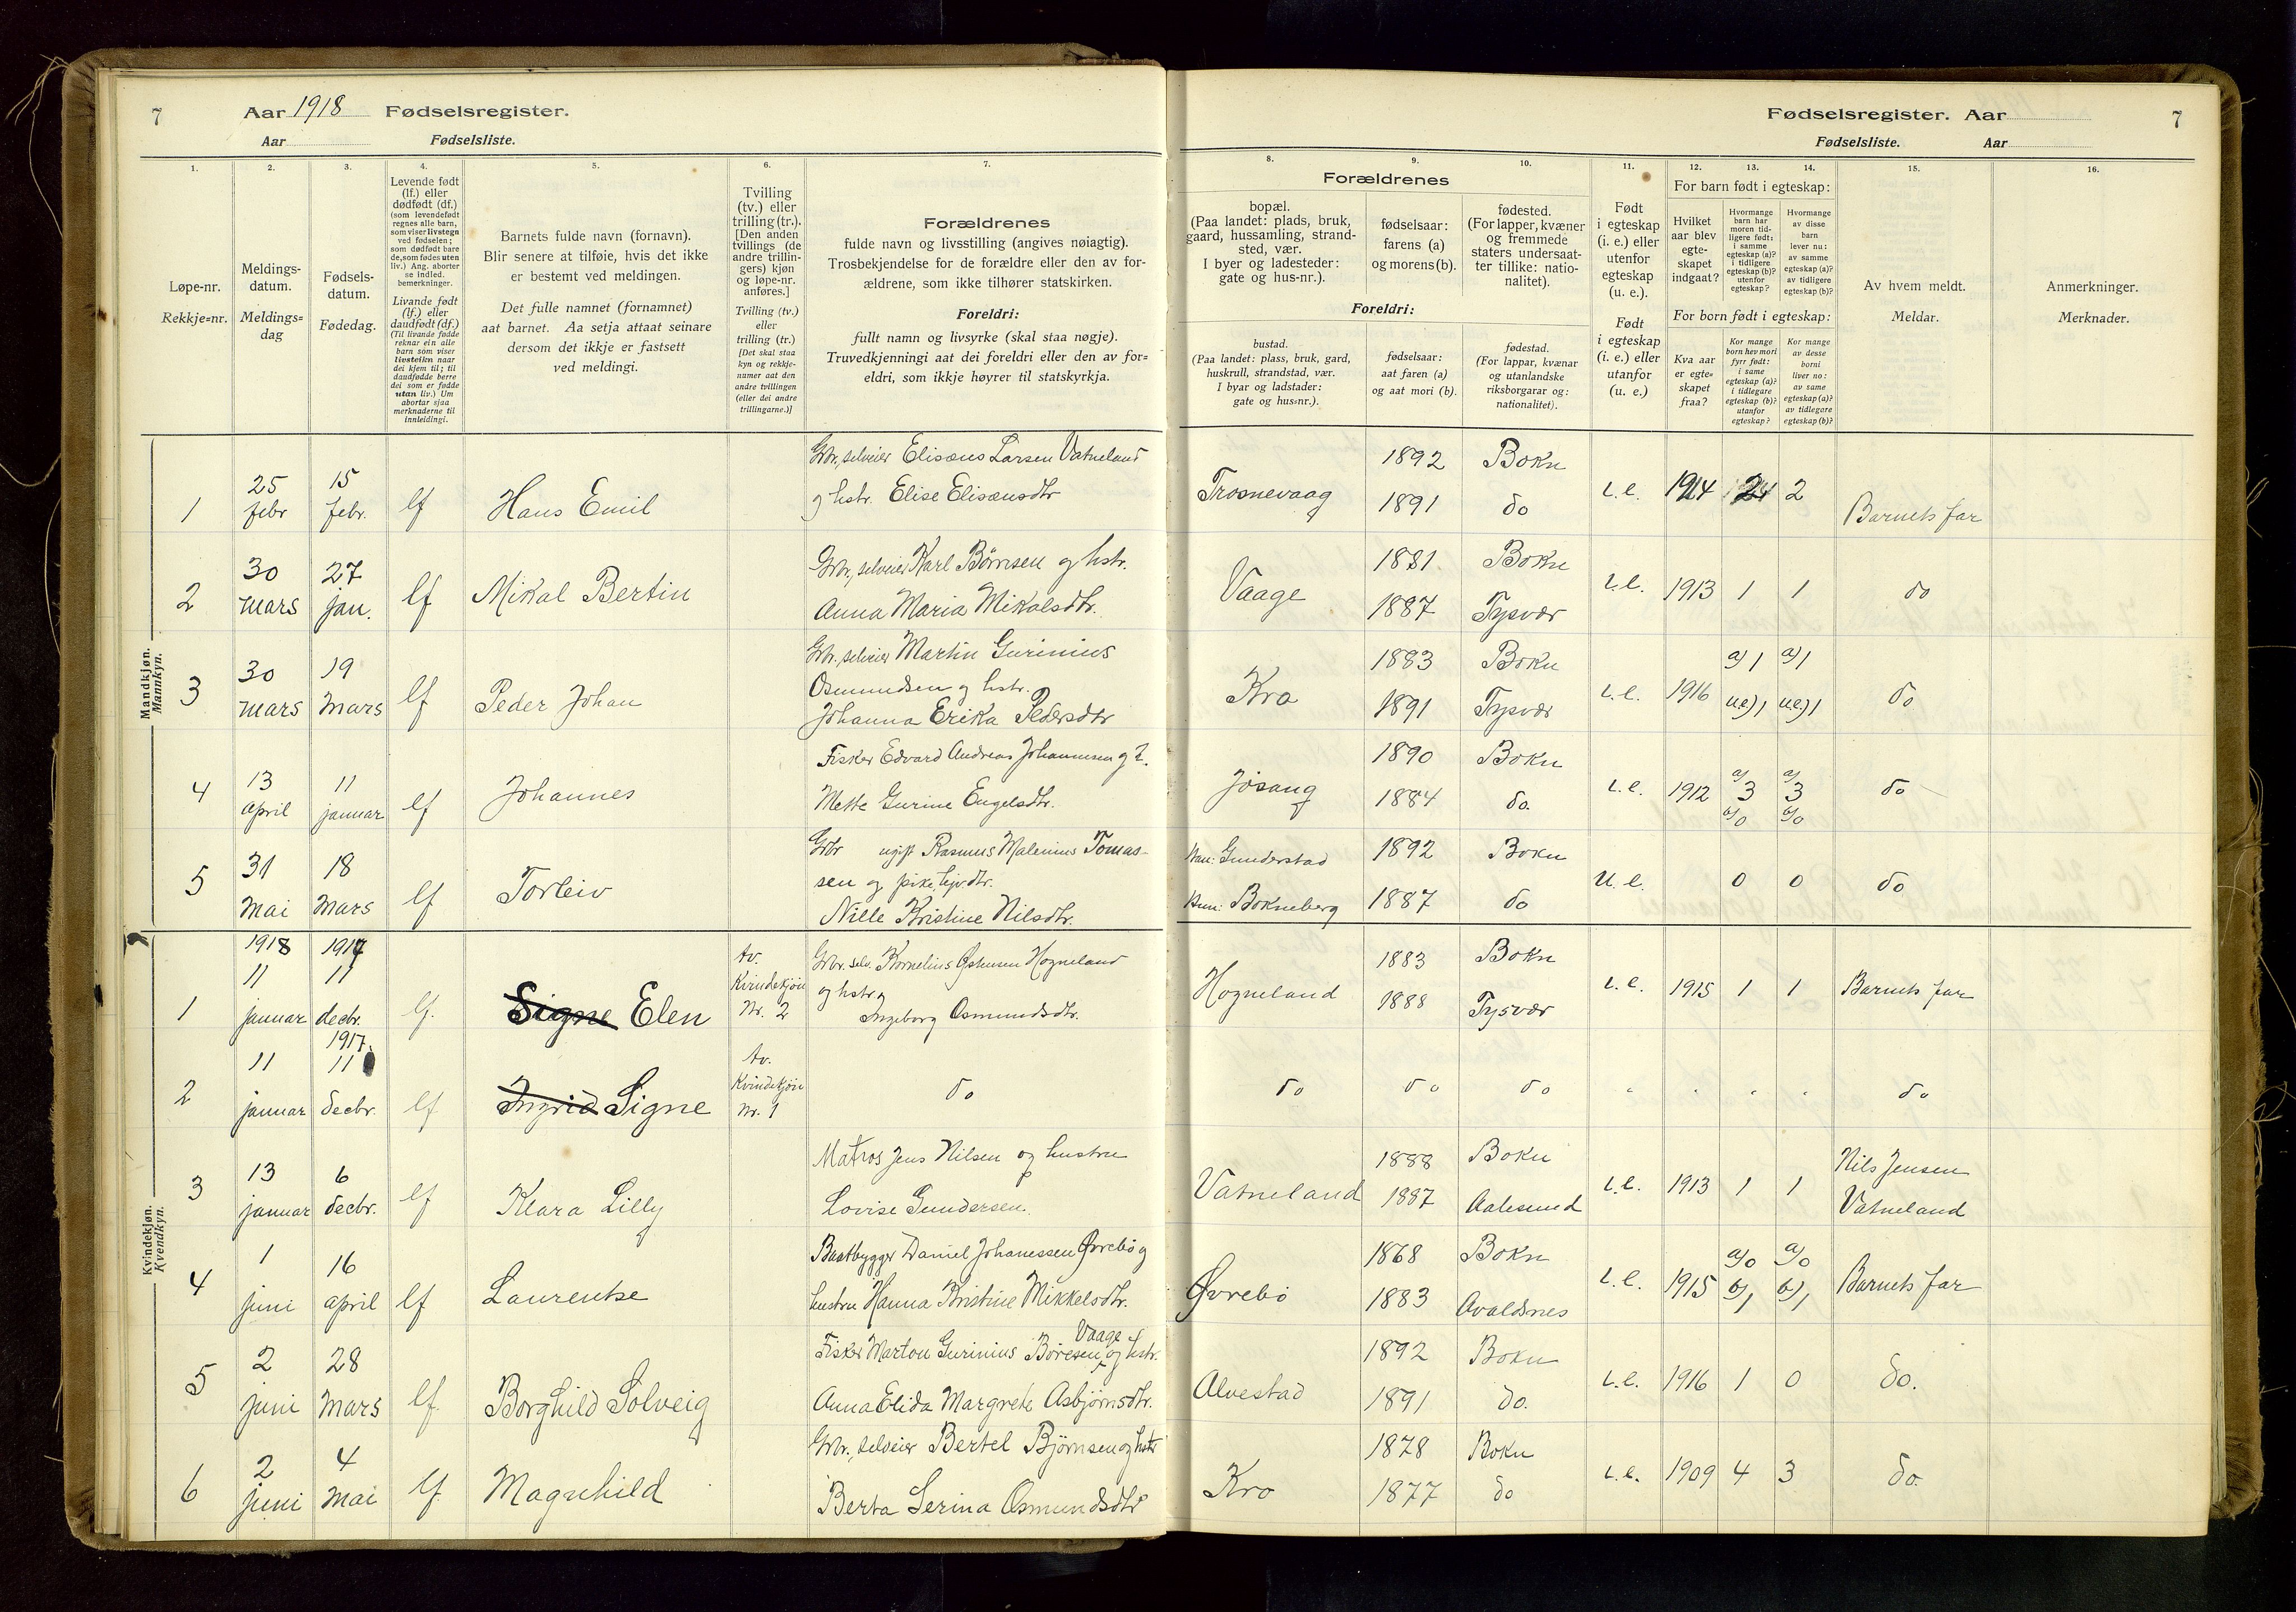 7 Aar 1918 Fødselsregister.
Aar Fødselsliste.
Fødselsregister. Aar 7
Fødselsliste. Aar
1. 2. 3. 4. 5. 6. 7.
Løpe-nr.
Rekkje=nr.
Meldings-
datum.
Meldings=
dag
Fødsels-
datum.
Fødedag.
Levende født
(lf.) eller
dødfødt (df.)
(som levendefødt
regnes alle barn,
som viser livstegn
ved fødselen;
som dødfødt bare
de, som fødes uten
liv.) Ang. aborter
se indled.
bemerkninger.
Livande født
(lf.) eller
daudfødt (df.)
(Til livande fødde
reknar ein alle
barn som viser
livsteikn naar
dei kjem til; til
daudfødde berre
dei som er fødde
utan liv.) Um
abortar sjaa
merknaderne til
innleidingi.
Barnets fulde navn (fornavn).
Blir senere at tilføie, hvis det ikke
er bestemt ved meldingen.
Det fulle namnet (fornamnet)
aat barnet. Aa setja attaat seinare
dersom det ikkje er fastsett
ved meldingi.
Tvilling
(tv.) eller
trilling (tr.).
[Den anden
tvillings (de
andre trillin-
gers) kjøn
og løpe-nr.
anføres.]
Tvilling (tv.)
eller
trilling (tr.)
[Det skal staa
kyn og rekkje-
numer aat den
andre tvillingen
(eller dei andre
trillingarne.)]
Forældrenes
fulde navn og livsstilling (angives nøiagtig).
Trosbekjendelse for de forældre eller den av for-
ældrene, som ikke tilhører statskirken.
Foreldri:
fullt namn og livsyrke (skal staa nøgje).
Truvedkjenningi aat dei foreldri eller den av for=
eldri, som ikkje høyrer til statskyrkja.
8. 9. 10. 11. 12. 13. 14. 15. 16.
Forældrenes
bopæl.
(Paa landet: plads, bruk,
gaard, hussamling, strand-
sted, vær.
I byer og ladesteder:
gate og hus-nr.).
fødselsaar:
farens (a)
og morens (b).
fødested.
(For lapper, kvæner
og fremmede
staters undersaat-
ter tillike: natio-
nalitet).
Foreldri:
bustad.
(Paa landet: plass, bruk, gard,
huskrull, strandstad, vær.
I byar og ladstader:
gate og hus=nr.).
fødselsaar:
aat faren (a)
og aat mori (b).
fødestad.
(For lappar, kvænar
og utanlandske
riksborgarar og:
nationalitet).
Født
i egteskap
(i. e.) eller
utenfor
egteskap
(u. e.).
Født
i egteskap
(i. e.) eller
utanfor
(u. e.)
For barn født i egteskap:
Hvilket
aar blev
egte-
skapet
indgaat?
Hvormange
barn har
moren tid-
ligere født:
i samme
egteskap (a)?
i tidligere
egteskap (b)?
utenfor
egteskap?
Hvormange
av disse
barn
lever nu:
av samme
egteskap (a)?
av tidligere
egteskap (b)?
For born født i egteskap:
Kva aar
er egte=
skapet
fraa?
Kor mange
born hev mori
fyrr født:
i same
egteskap (a)?
i tidlegare
egteskap (b)?
utanfor
egteskap?
Kor mange
av desse
borni
liver no:
av same
egteskap (a)?
av tidlegare
egteskap (b)?
Av hvem meldt.
Meldar.
Anmerkninger.
Merknader.
Mandkjøn.
Mannkyn.
1 25 febr 15 febr. lf Hans Emil
Grbr., selveier Elisæus Larsen Vatneland
og hstr. Elise Elisæusdtr
Trosnevaag 1892 1891 Bokn do i.e. 1914 2 2 Barnets far
2 30 mars 27 jan. lf Mikal Bertin
Grbr., selveier Karl Børnsen og hstr.
Anna Maria Mikalsdtr.
Vaage 1881. 1887 Bokn Tysvær i.e. 1913 1 1 do
3 30 mars 19 mars lf Peder Johan
Grbr., selveier Martin Gurinius
Osmundsen og hstr.
Johanna Erika Pedersdtr
Kro 1883 1891 Bokn Tysvær i.e. 1916 a/1 ue)1 a/1 ue)1 do
4 13 april 11 januar lf Johannes
Fisker Edvard Andreas Johannesen og h.
Mette Gurine Engelsdtr.
Jøsang 1890 1884 Bokn do. i.e. 1912 a/3 b/0 a/3 b/0 do
5 31 mai 18 mars lf Torleiv
Grbr ugift Rasmus Malenius Tomas-
sen og pike, tjv.dtr.
Nille Kristine Nilsdtr.
Han: Gunderstad
Hun: Bokneberg
1892 1887 Bokn do u.e. 0 0 do
Kvindekjøn.
Kvendkyn.
1 1918 11 januar 1917 11 decbr. lf. Signe Elen
tv. Kvindekjøn Nr. 2
Grbr. selv. Kornelius Østensen Hogneland
og hstr.
Ingeborg Osmundsdtr.
Hogneland 1883 1888 Bokn Tysvær i.e. 1915 1 1 Barnets far
2 11 januar 1917. 11 decbr. lf Ingrid Signe
tv. Kvindekjøn nr. 1
do do do do do
3 13 januar 6 decbr. lf Klara Lilly
Matros Jens Nilsen og hustru
Lovise Gundersen.
Vatneland 1888 1887 Bokn Aalesund i.e. 1913 1 1 Nils Jensen Vatneland
4 1 juni 16 april lf Laurentse
Baatbygger Daniel Johanessen Øvrebø og
hustru Hanna Kristine Mikkelsdtr.
Øvrebø 1868 1883 Bokn Avaldsnes i.e. 1915 a/0 b/1 a/0 b/1 Barnets far
5 2 juni 28 mars lf. Borghild Solveig
Vaage
Fisker Marton Gurinius Børesen og hstr.
Anna Elida Margrete Asbjørnsdtr.
Alvestad 1892 1891 Bokn do. i.e. 1916 1 0 do.
6 2 juni 4 mai lf. Magnhild
Grbr., selveier Bertel Bjørnsen og hstr
Berta Serina Osmundsdtr
Kro 1878 1877 Bokn do i.e. 1909 4 3 do.